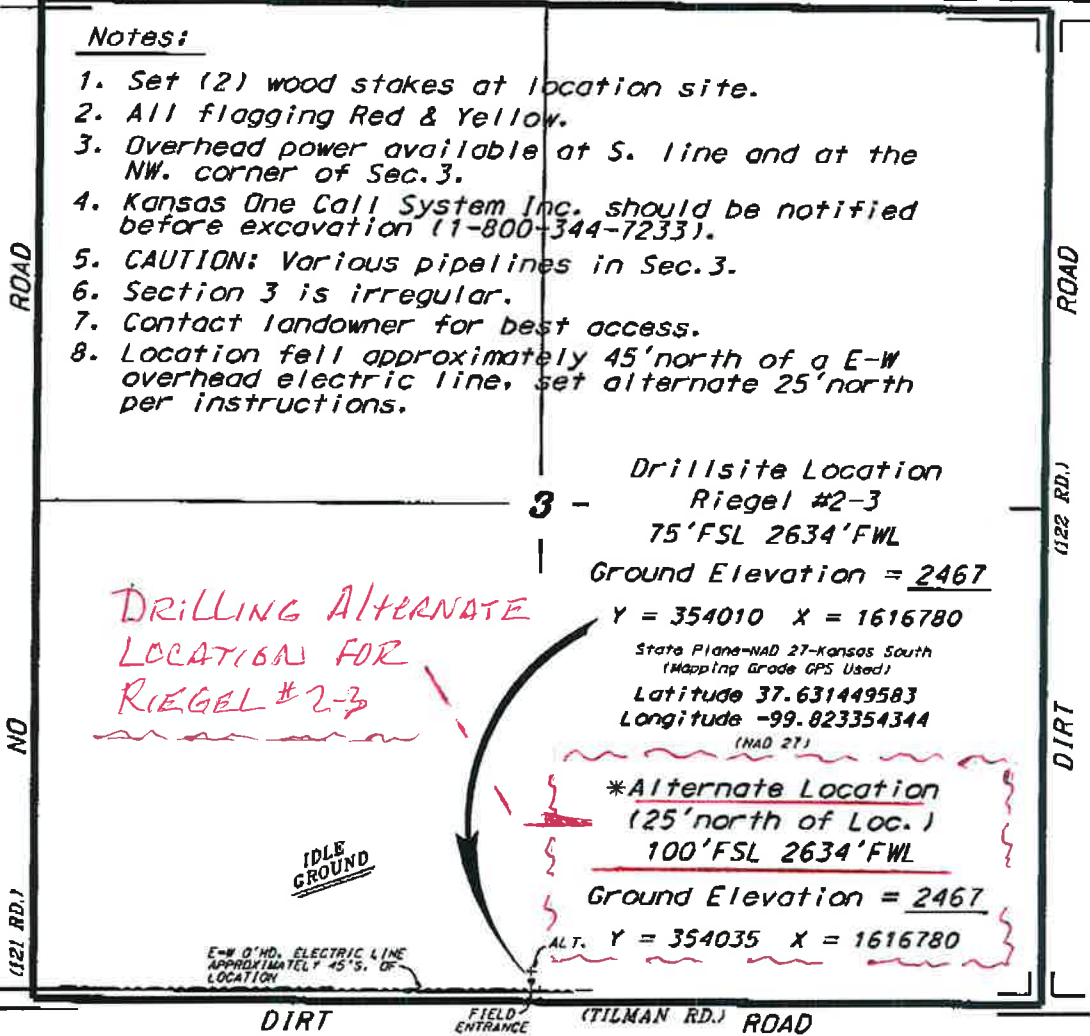 Notes:
1. Set (2) wood stakes at location site.
2. All flagging Red & Yellow.
3. Overhead power available at S. line and at the
NW. corner of Sec.3.
4. Kansas One Call System Inc. should be notified
before excavation (1-800-344-7233).
5. CAUTION: Various pipelines in Sec.3.
6. Section 3 is irregular.
7. Contact landowner for best access.
8. Location fell approximately 45'north of a E-W
overhead electric line, set alternate 25'north
per instructions.
ROAD
NO
(121 RD.)
ROAD
(122 RD.)
DIRT
3
Drillsite Location
Riegel #2-3
75'FSL 2634'FWL
Ground Elevation = 2467
Y = 354010 X = 1616780
State Plane-NAD 27-Kansas South
(Mapping Grade GPS Used)
Latitude 37.631449583
Longitude -99.823354344
(NAD 27)
DRILLING ALTERNATE
LOCATION FOR
RIEGEL # 2-3
*Alternate Location
(25'north of Loc.)
100'FSL 2634'FWL
Ground Elevation = 2467
ALT. Y = 354035 X = 1616780
IDLE
GROUND
E-W O'HD. ELECTRIC LINE
APPROXIMATELY 45'S. OF
LOCATION
DIRT
FIELD
ENTRANCE
(TILMAN RD.) ROAD